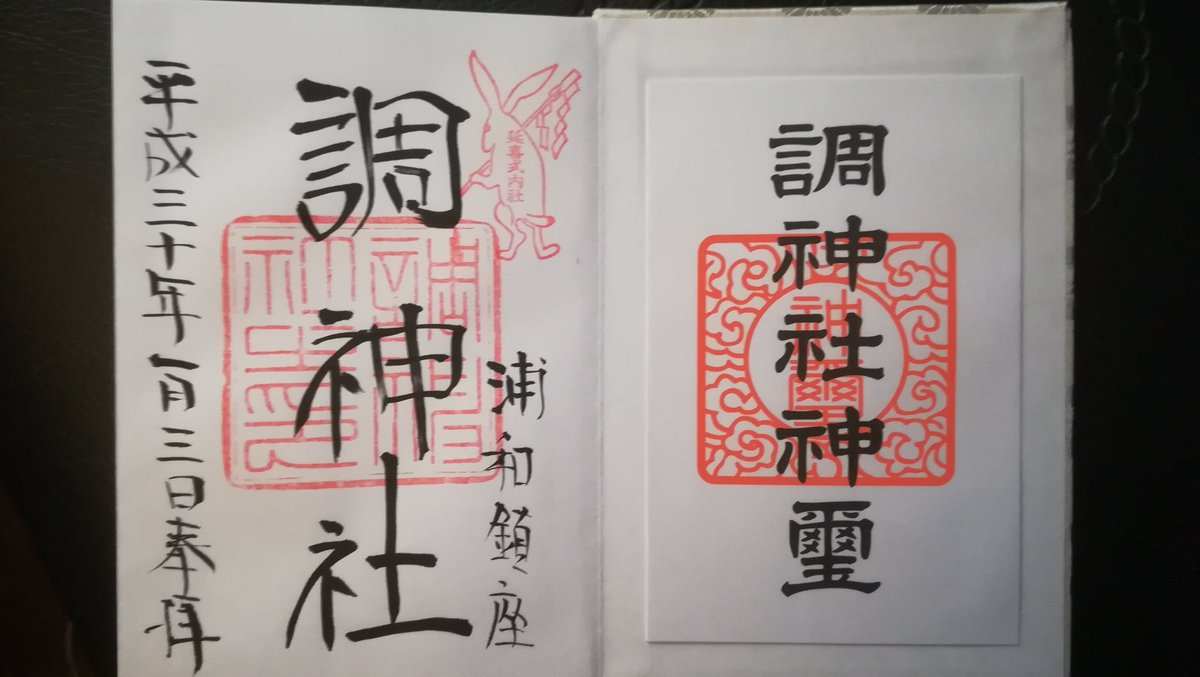 調神社神璽
神璽
延喜式内社
浦和鎮座
調神社
平成三十年一月三日奉拝